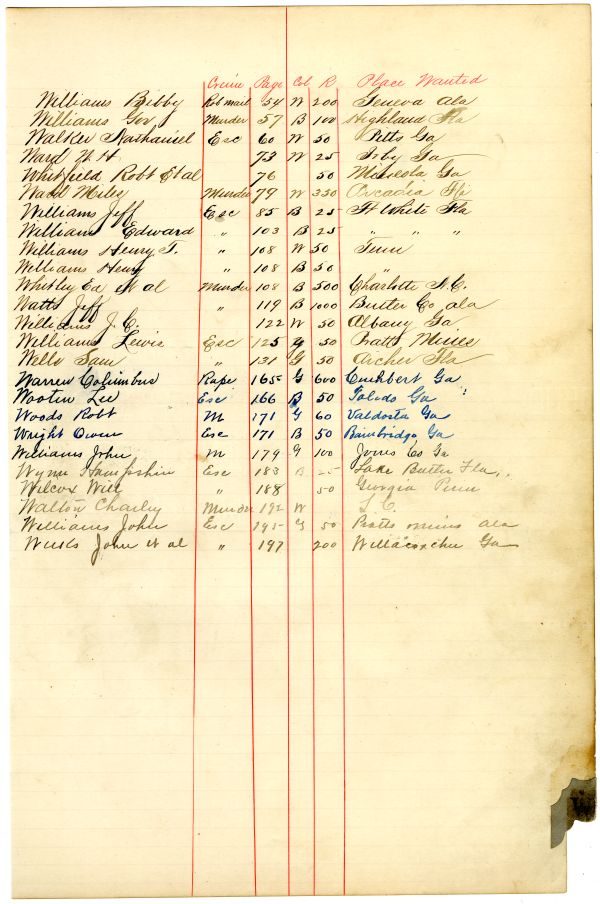 Crime Page Col R Place Wanted
Williams Bibby Rob mail 54 W 200 Geneva Ala
Williams Gov J Murder 57 B 100 Highland Fla
Walker Nathaniel Esc 60 W 50 Pitts Ga
Ward W H 73 W 25 Irby Ga
Whitfield Robt Et al 76 50 Mineola Ga
Ward Miley Murder 79 W 350 Arcadia Fla
Williams Jeff Esc 85 B 25 Ft White Fla
Williams Edward " 103 B 25 " " "
Williams Henry T. " 108 W 50 Tenn
Williams Henry " 108 B 50 "
Whitley Ed et al Murder 108 B 500 Charlotte N.C.
Watts Jeff " 119 B 1000 Butler Co ala
Williams J.C. 122 W 50 Albany Ga
Williams Lewis Esc 125 G 50 Pratts Mines
Wells Sam " 131 G 50 Archer Fla
Warren Columbus Rape 165 G 600 Cuthbert Ga
Wooten Lee Esc 166 B 50 Toledo Ga
Woods Robt M 171 G 60 Valdosta Ga
Wright Owen Esc 171 B 50 Bainbridge Ga
Williams John M 179 G 100 Jones Co Ga
Wynn Hampshire Esc 183 B 25 Lake Butler Fla
Wilcox Will " 188 50 Georgia Penn
Walton Charley Murder 192 W S.C.
Williams John Esc 195 G 50 Pratts mines ala
John et al " 197 200 Willacoochee Ga